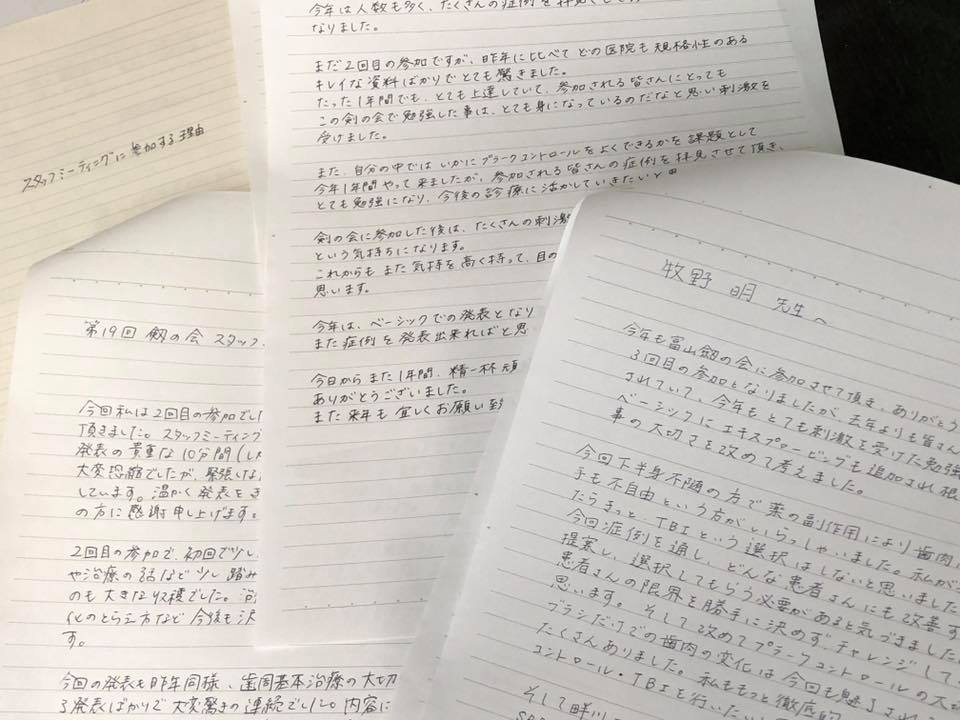 スタッフミーティングに参加する理由
今年は人数も多く、たくさんの症例を拝見して
なりました。
まだ2回目の参加ですが、昨年に比べてどの医院も規格性のある
キレイな資料ばかりでとても驚きました。
たった1年間でも、とても上達していて、参加される皆さんにとっても
この剣の会で勉強した事は、とても身になっているのだなと思い刺激を
受けました。
また、自分の中ではいかにプラークコントロールをよくできるかを課題として
今年1年間やって来ましたが、参加される皆さんの症例を拝見させて頂き、
とても勉強になり、今後の診療に活かしていきたいと
剣の会に参加した後は、たくさんの刺激
という気持ちになります。
これからもまた気持を高く持って、目の
思います。
今年は、ベーシックでの発表となり
また症例を発表出来ればと思
今日からまた1年間、精一杯頑
ありがとうございました。
また来年も宜しくお願い致
第19回 剱の会 スタッフ
今回私は2回目の参加でし
頂きました。スタッフミーティング
発表の貴重な10分間(した
大変恐縮でしたが、緊張しな
しています。温かく発表をき
の方に感謝申し上げます。
2回目の参加で、初回で少し
や治療の話など少し踏み
のも大きな収穫でした。
化のとらえ方など今後も決
す。
今回の発表も昨年同様、歯周基本治療の大切
る発表ばかりで大変驚きの連続でした。内容に
牧野 明 先生へ
今年も富山剱の会に参加させて頂き、ありがとう
3回目の参加となりましたが、去年よりも皆さん
されていて、今年もとても刺激を受けた勉強
ベーシックにエキスプロービングも追加され根
事の大切さを改めて考えました。
今回下半身不随の方で薬の副作用により歯肉
手も不自由という方がいらっしゃいました。私が
たらきっと、TBIという選択はしないと思いました
今回症例を通し、どんな患者さんにも改善す
提案し、選択してもらう必要があると気づきました
患者さんの限界を勝手に決めず、チャレンジして
思います。そして改めてプラークコントロールの大切
ブラシだけでの歯肉の変化は今回も魅了され
たくさんありました。私ももっと徹底的
コントロール・TBIを行いたい
そして畔川